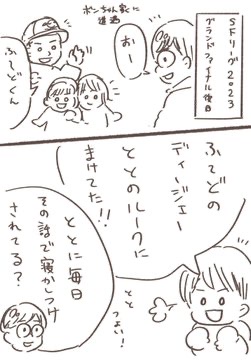 SFリーグ2023
グランドファイナル後日
ポンちゃん家に
遭遇
おー
ふーどくん
ふーどの
ディージェー
ととのルークに
まけてた!!
とと
つよい!
ととに毎日
その話で寝かしつけ
されてる?